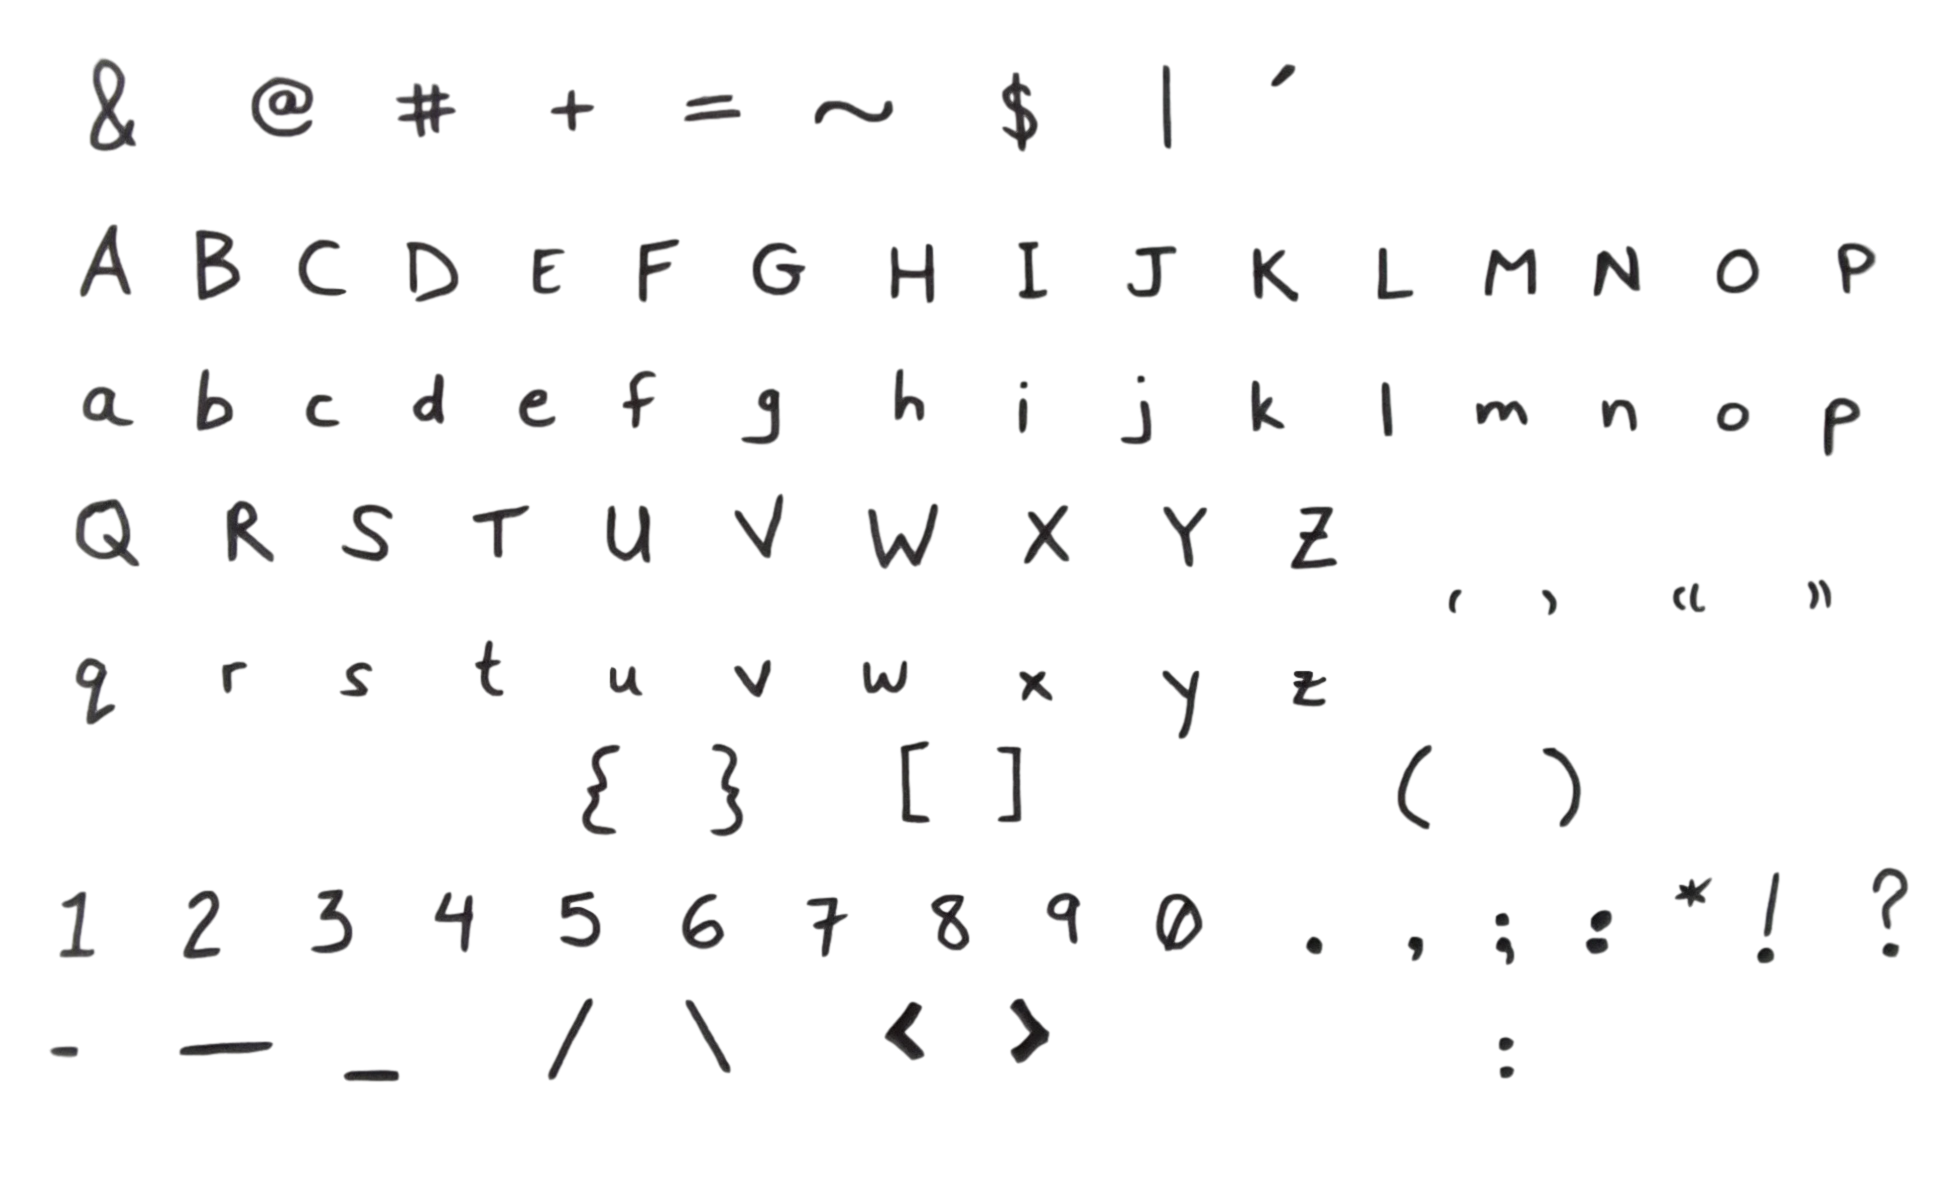 & @ # + = ~ $ | ´
A B C D E F G H I J K L M N O P
a b c d e f g h i j k l m n o p
Q R S T U V W X Y Z
‘ ’ “ ”
q r s t u v w x y z
{ } [ ] ( )
1 2 3 4 5 6 7 8 9 0 . , ; : * ! ?
- — _ / \ < > :